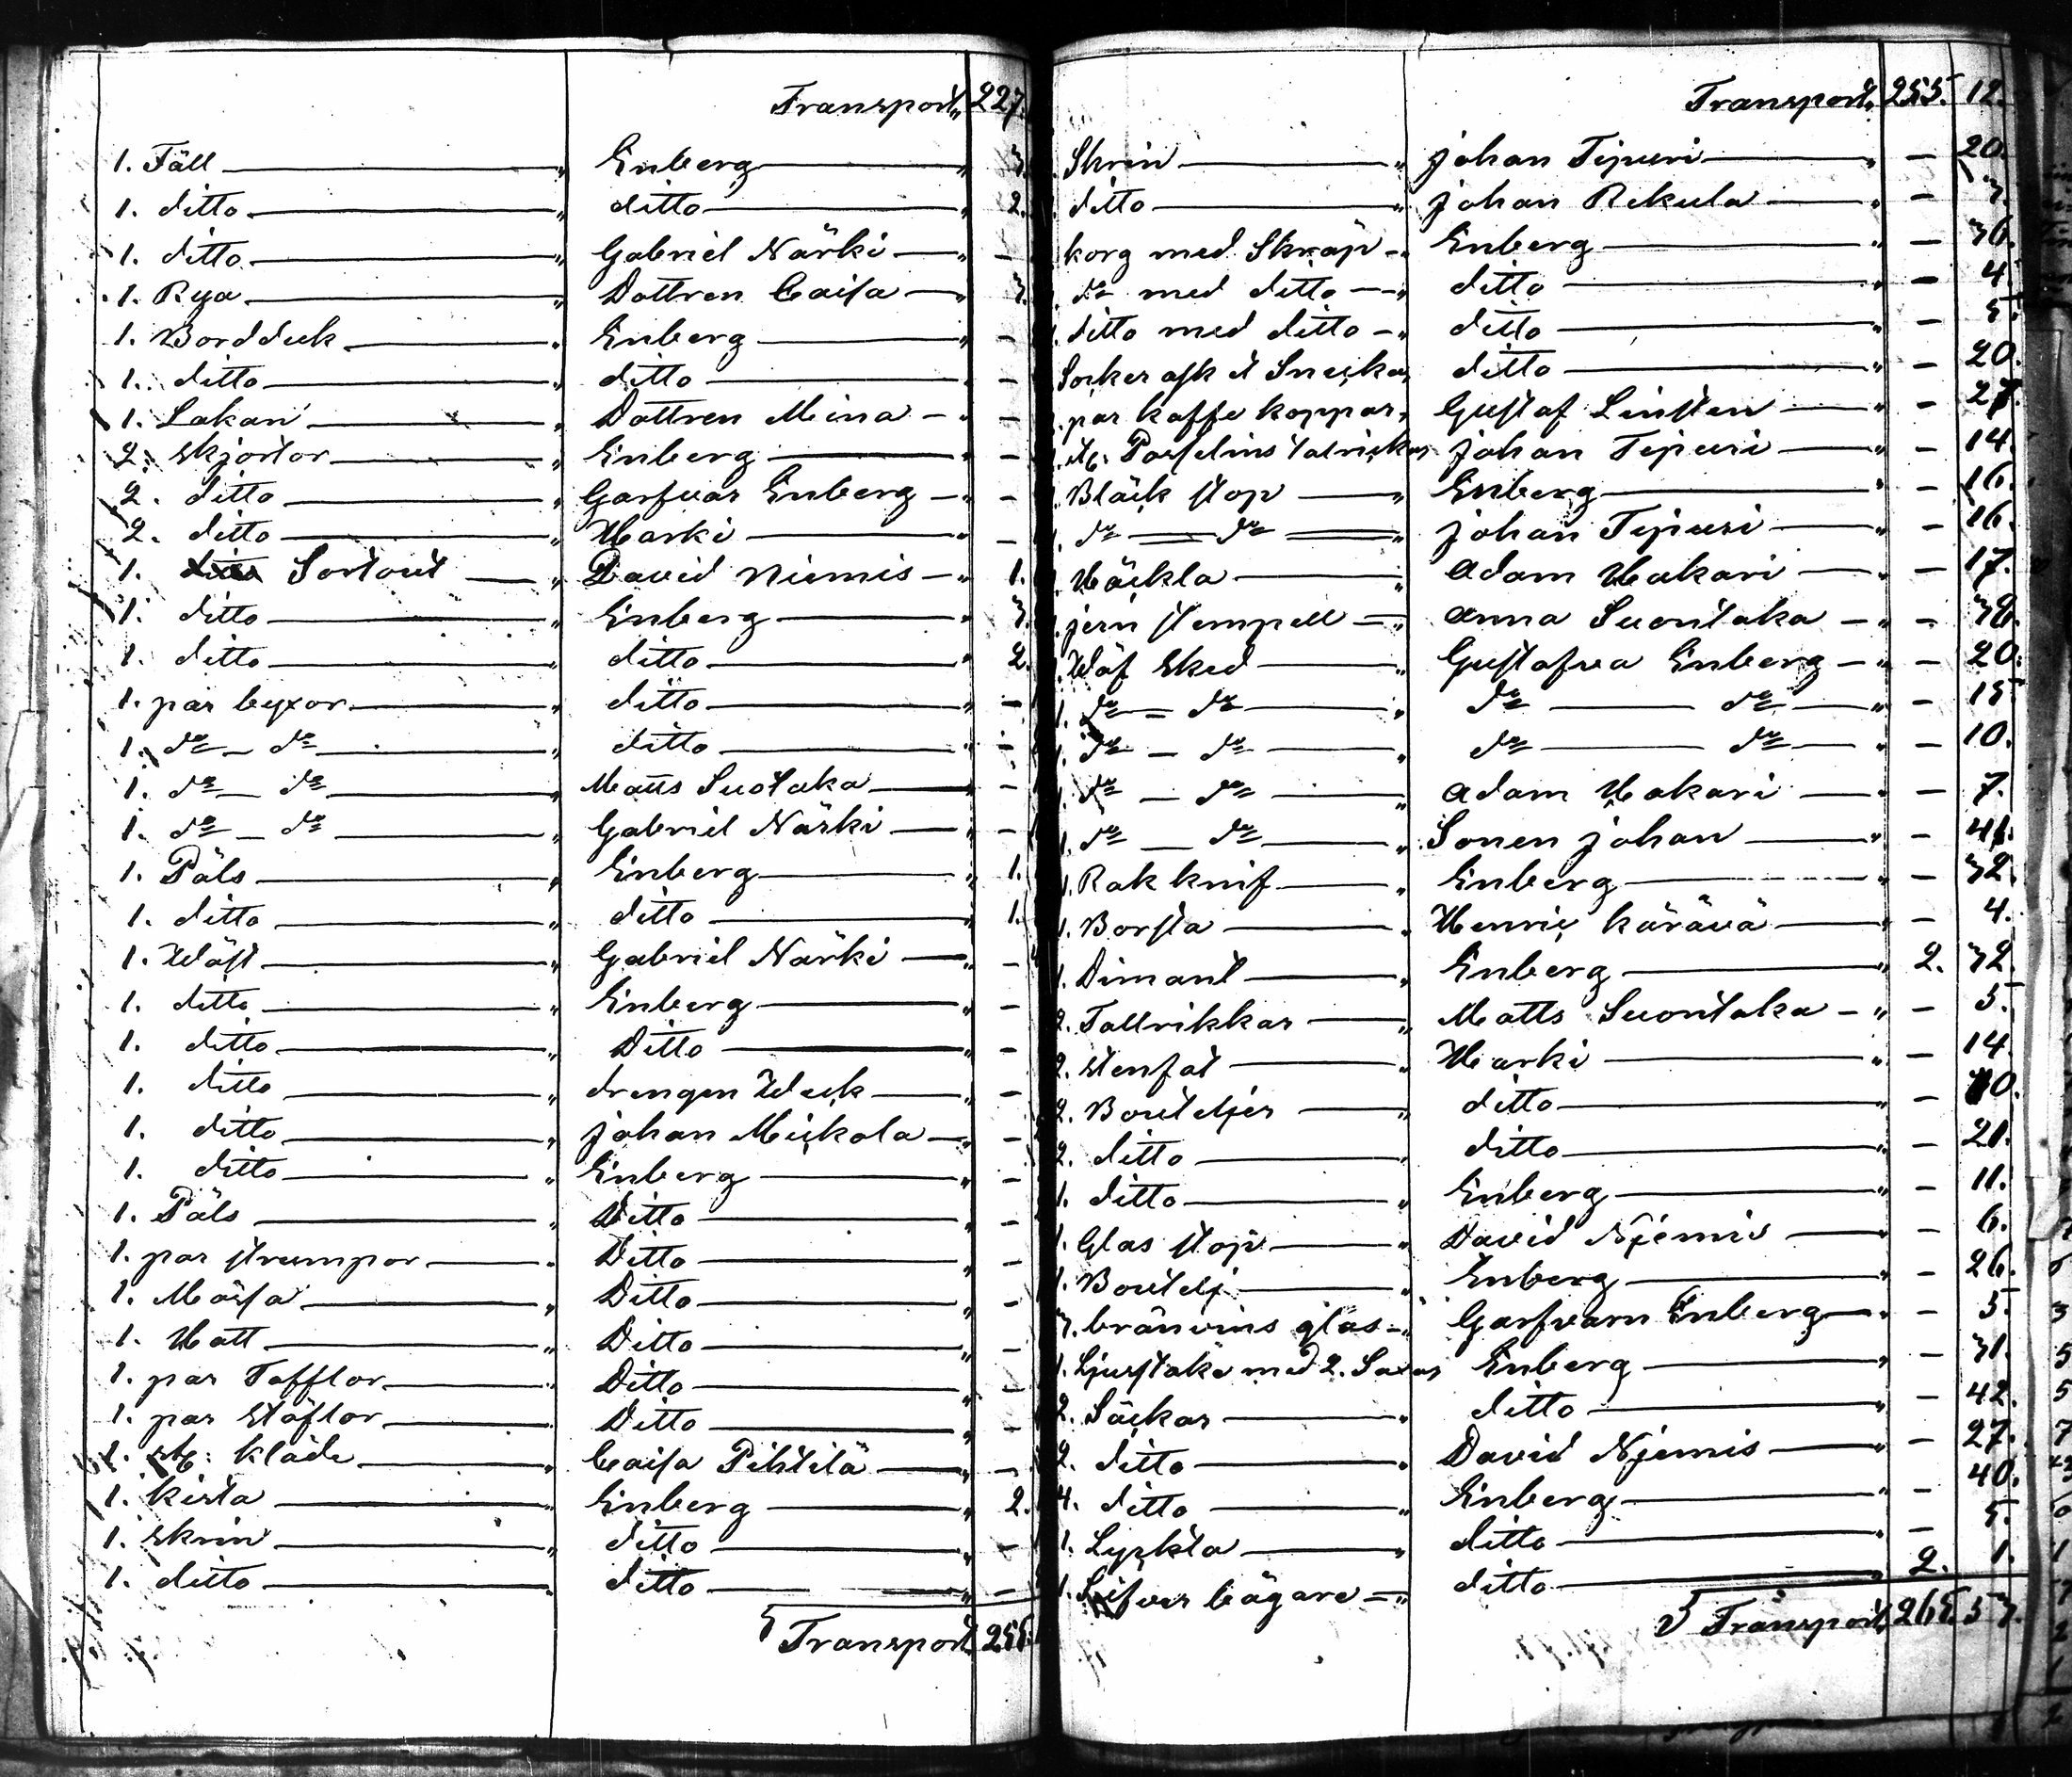 Transport 227.
1. Fäll Enberg 3.
1. ditto ditto 2.
1. ditto Gabriel Närki –
1. Rya Dottren Caisa 3.
1. Bordduk Enberg –
1. ditto ditto –
1. Lakan Dottren Mina –
2. skjortor Enberg –
2. ditto Garfvar Enberg –
2. ditto Harki –
1. Sortout David Niemis 1.
1. ditto Enberg 3.
1. ditto ditto 2.
1. par byxor ditto –
1. do – do ditto –
1. do – do Matts Suotaka –
1. do – do Gabriel Närki –
1. Päls Enberg 1.
1. ditto ditto 1.
1. Wäst Gabriel Närki –
1. ditto Enberg –
1. ditto Ditto –
1. ditto drengen Weck –
1. ditto Johan Mickola –
1. ditto Enberg –
1. Päls Ditto –
1. par strumpor Ditto –
1. Mössa Ditto –
1. Hatt Ditto –
1. par Tofflor Ditto –
1. par stöflor Ditto –
1. st: kläde Caisa Pihtilä –
1. kista Enberg 2.
1. skrin ditto –
1. ditto ditto –
Transport 255.
Transport 255. 12.
Skrin Johan Tipuri – 20.
ditto Johan Rekula – 3.
korg med Skräp Enberg – 36.
do med ditto ditto – 4.
ditto med ditto ditto – 5.
Socker ask et Snickar ditto – 20.
par kaffe koppar Gustaf Linsten – 27.
st: Porslins talrickar Johan Tipuri – 14.
Bläck stop Enberg – 16.
1. do do Johan Tipuri – 16.
1. Häckla Adam Hakari – 17.
1. jern stempell Anna Suontaka – 38.
1. Wäf sked Gustafva Enberg – 20.
1. do – do do do – 15
1. do – do do do – 10.
1. do – do Adam Hakari – 7.
1. do – do Sonen Johan – 41.
1. Rak knif Enberg – 32.
1. Borsta Henric Kärävä – 4.
1. Dimant Enberg 2. 32.
2. Tallrikkar Matts Suontaka – 5.
2. stenfat Harki – 14.
2. Bouteljer ditto – 10.
2. ditto ditto – 21.
1. ditto Enberg – 11.
1. Glas stop David Njemis – 6.
1. Boutelj Enberg – 26.
3. bränvins glas Garfvarn Enberg – 5.
1. Ljusstake med 2. Saxar Enberg – 31.
2. Säckar ditto – 42.
2. ditto David Njemis – 27.
4. ditto Enberg – 40.
1. Lyckta ditto – 5.
1. Silfver bägare ditto 2. 1.
Transport 265. 53.